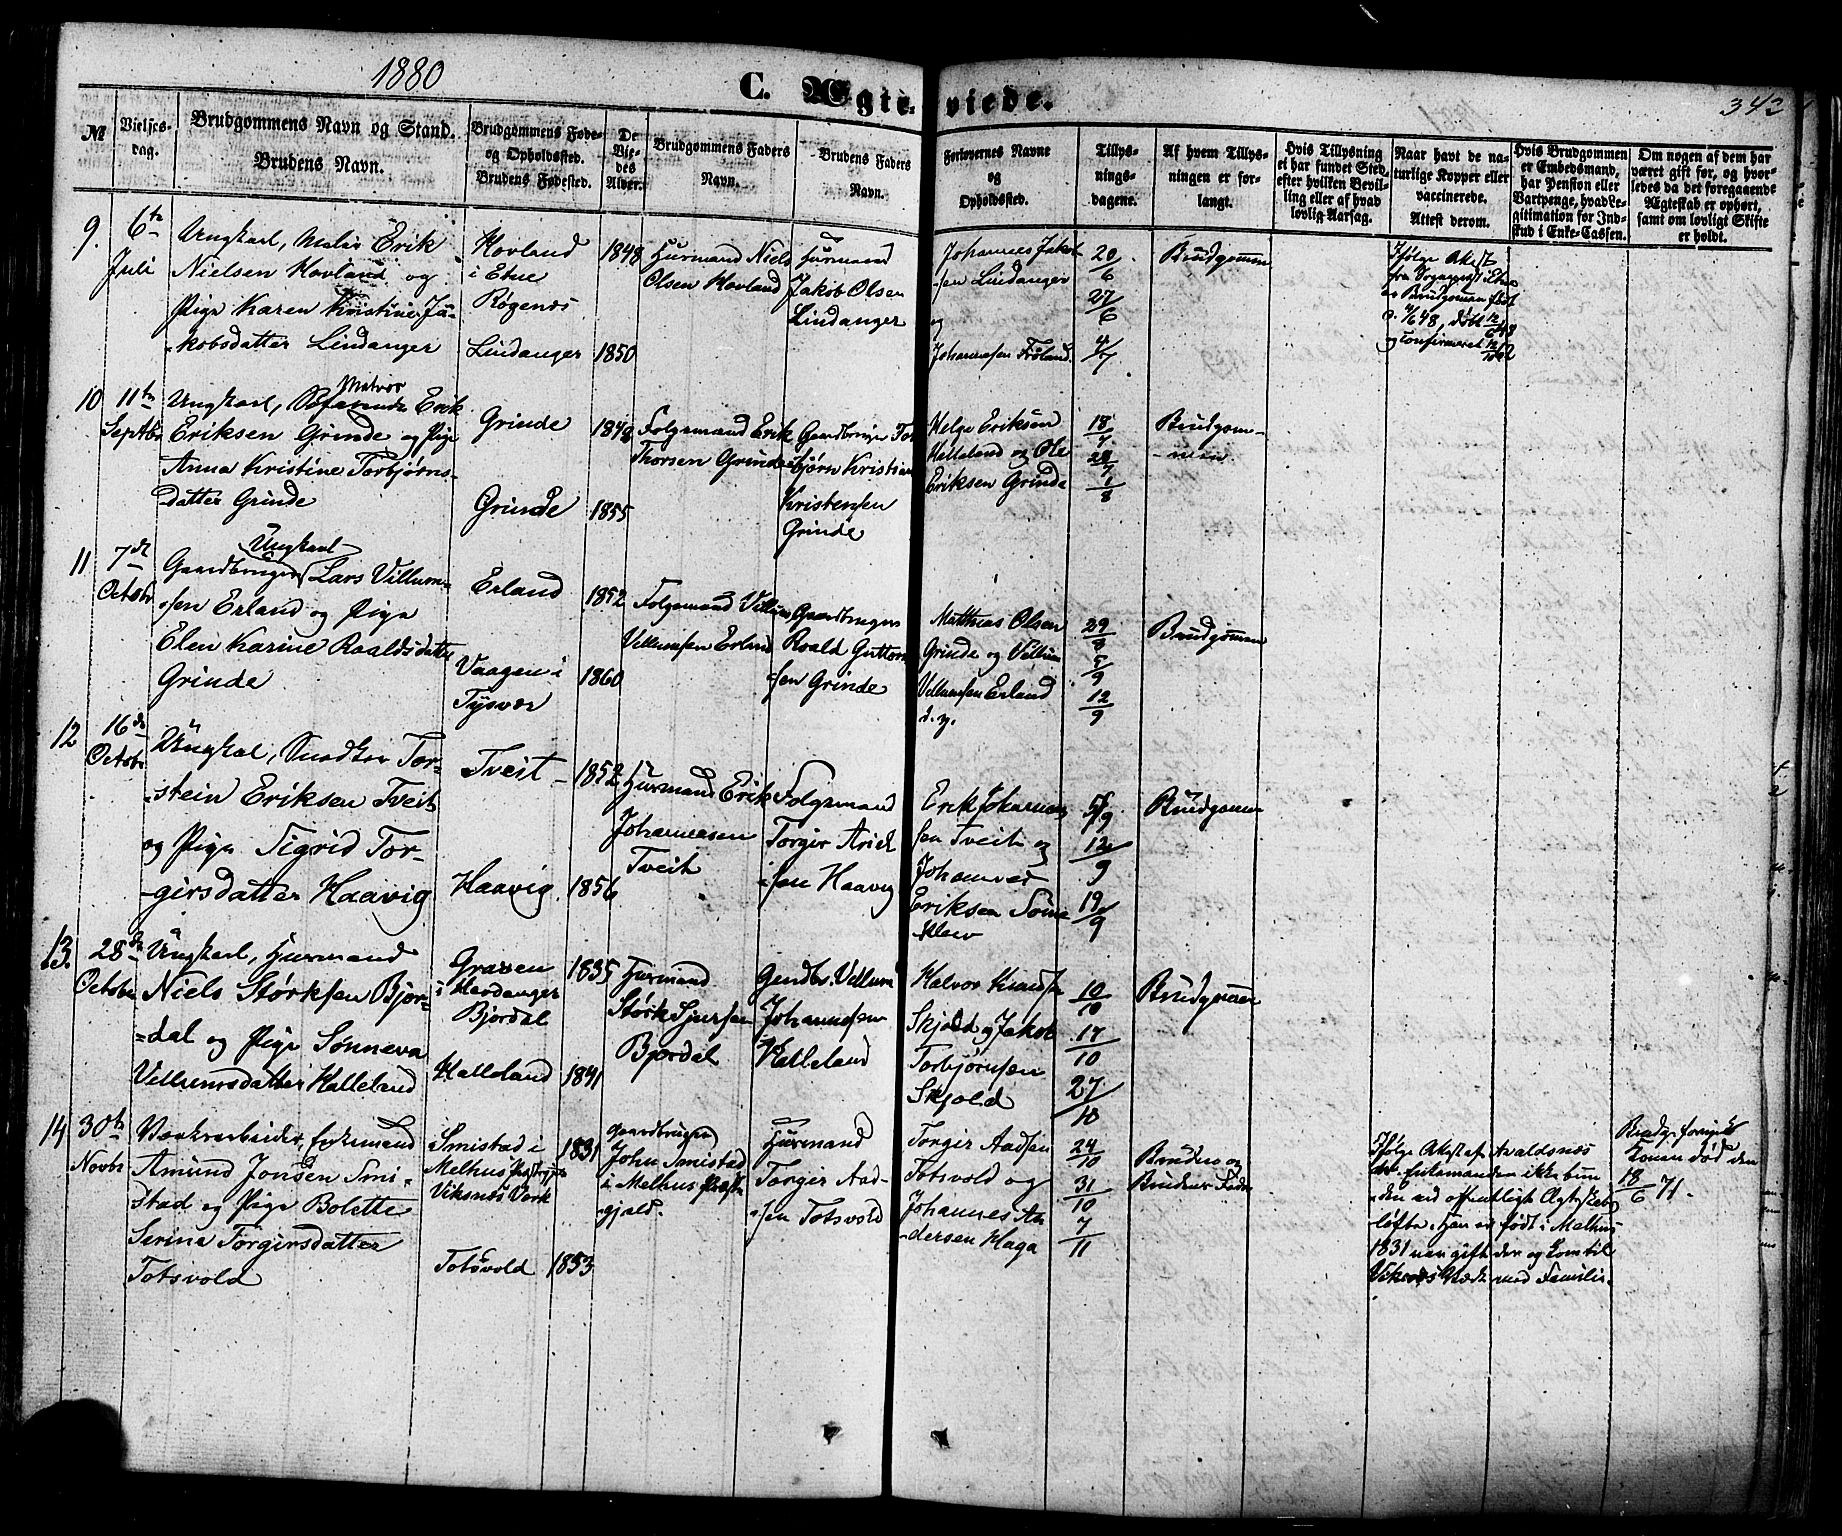 1880
C. Ægteviede.
343
№
Vielses-
dag.
Brudgommens Navn og Stand.
Brudens Navn.
Brudgommens Føde-
og Opholdssted.
Brudens Fødested.
De
Vie-
des
Alder.
Brudgommens Faders
Navn.
Brudens Faders
Navn.
Forlovernes Navne
og
Opholdssted.
Tillys-
nings-
dagene.
Af hvem Tillys-
ningen er for-
langt.
Hvis Tillysning
ei har fundet Sted,
efter hvilken Bevil-
ling eller af hvad
lovlig Aarsag.
Naar havt de na-
turlige Kopper eller
vaccinerede.
Attest derom.
Hvis Brudgommen
er Embedsmand,
har Pension eller
Vartpenge, hvad Le-
gitimation for Ind-
skud i Enke-Cassen.
Om nogen af dem har
været gift før, og hvor-
ledes da det foregaaende
Ægteskab er ophørt,
samt om lovligt Skifte
er holdt.
9.
6te
Juli
Ungkarl, Maler Erik
Nielsen Hovland og
Pige Karen Kristine Ja-
kobsdatter Lindanger
Hovland
i Etne
Røgenæs
Lindanger
1848
1850
Husmand Niels
Olsen Hovland
Husmand
Jakob Olsen
Lindanger
Johannes Jakob-
sen Lindanger
og
Johannesen Frøland
20/6
27/6
4/7
Brudgommen
Ifølge Attest
fra Sognepræst Etne
er Brudgommen født
confirmeret
10
11te
Septbr
Ungkarl, Matros Erik
Eriksen Grinde og Pige
Anna Kristine Torbjørns-
datter Grinde
Grinde
Grinde
1848
1855
Folgemand Erik
Thorsen Grinde
Gaardbruger Tor-
bjørn Kristian
Kristensen
Grinde
Helge Eriksen
Helleland og Ole
Eriksen Grinde
18/7
1/8
Brudgom-
men
11
7de
Octobr
Ungkarl
Gaardbruger Lars Villum-
sen Erland og Pige
Elen Karine Roaldsdatter
Grinde
Erland
Vaagen i
Tysvær
1852
1860
Folgemand Villum
Villumsen Erland
Gaardbruger
Roald Guttorm-
sen Grinde
Matthias Olsen
Grinde og Villum
Villumsen Erland
d. y.
29/8
5/9
12/9
Brudgommen
12
16de
Octobr
Ungkal, Snedker Tor-
stein Eriksen Tveit
og Pige Sigrid Tor-
girsdatter Haavig
Tveit
Haavig
1852
1856
Husmand Erik
Johannesen
Tveit
Folgemand
Torger Arick
sen Haavig
Erik Johannes-
sen Tveit og
Johannes
Eriksen Sønne
kleiv
5/9
12/9
19/9
Brudgommen
13.
28de
Octobr
Ungkarl, Husmand
Niels Størksen Bjor-
dal og Pige Sønneva
Villumsdatter Halleland
Graven
i Hardanger
Bjordal
Halleland
1835
1841
Husmand
Størk Sjursen
Bjordal
Gaardbr. Villum
Johannesen
Halleland
Halvor Knudsen
Skjold og Jakob
Torbjørnsen
Skjold
10/10
17/10
27/10
Brudgommen
14
30te
Novbr
Værkarbeider, Enkemand
Amund Jonsen Smi-
stad og Pige Bolette
Serine Torgirsdatter
Totsvold
Smistad i
Melhus
Viksnæs Verk
Totsvold
1831
1853
Gaardbruger
John Smistad
i Melhus Præste-
gjæld.
Husmand
Torgir Aad-
sen Totsvold
Torgir Aadsen
Totsvold og
Johannes An-
dersen Haga
24/10
31/10
7/11
Bruden og
Brudens Fader
Ifølge Attest af Avaldsnæs
er Enkemanden ikke bun-
den ved offentligt Ægteskabs
løfte. Han er født i Melhus
1831 og kom til
Viksnæs med Familie.
Brudg. forrige
Kone død den
18/6 71.